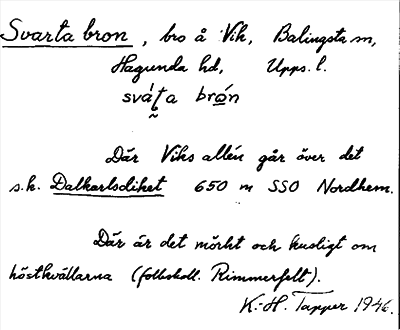 Svarta bron, bro å Vik, Balingsta sn,
Hagunda hd, Upps. l.
sváţa brǫ́n
Där Viks allén går över det
s.k. Dalkarlsdiket 650 m SSO Nordhem.
Där är det mörkt och kusligt om
höstkvällarna (folkskoll. Rimmerfelt).
K.-H. Tapper 1946.